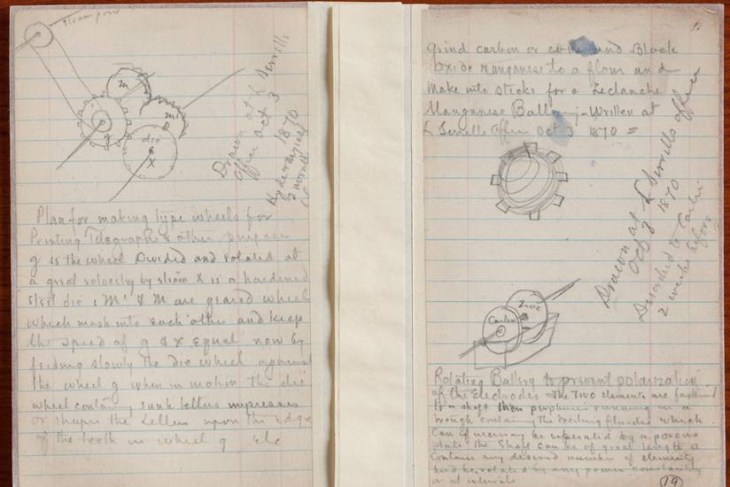 steam power
M
M'
g
die
X
Drawn at L Serrells
Office Oct 3
1870
Plan for making type wheels for
Printing Telegraphs & other purposes
g is the wheel Divided and rotated at
a great velocity by steam X is a hardened
steel die, M' & M are geared wheels
which mesh into each other and keep
the speed of g & X equal now by
feeding slowly the die wheel against
the wheel g when in motion the die
wheel containing sunk letters impresses
or shapes the letters upon the edge
of the teeth in wheel g
Grind carbon or and Black
Oxide Manganese to a flour and
Make into sticks for a Leclanche
Manganese Battery - Written at
L Serrells Office Oct 3 1870 =
Drawn at L Serrells Office
Oct 3 1870
Described to
2 weeks before
Carbon
Zinc
Rotating Battery to prevent polarization
of the Electrodes The two elements are fastened
to a shaft running in a
trough containing the exciting fluid which
Can if necessary be separated by a porous
plate the Shaft can be of great length &
Contain any desired number of elements
and be rotated by any power constantly
or at intervals
(19)